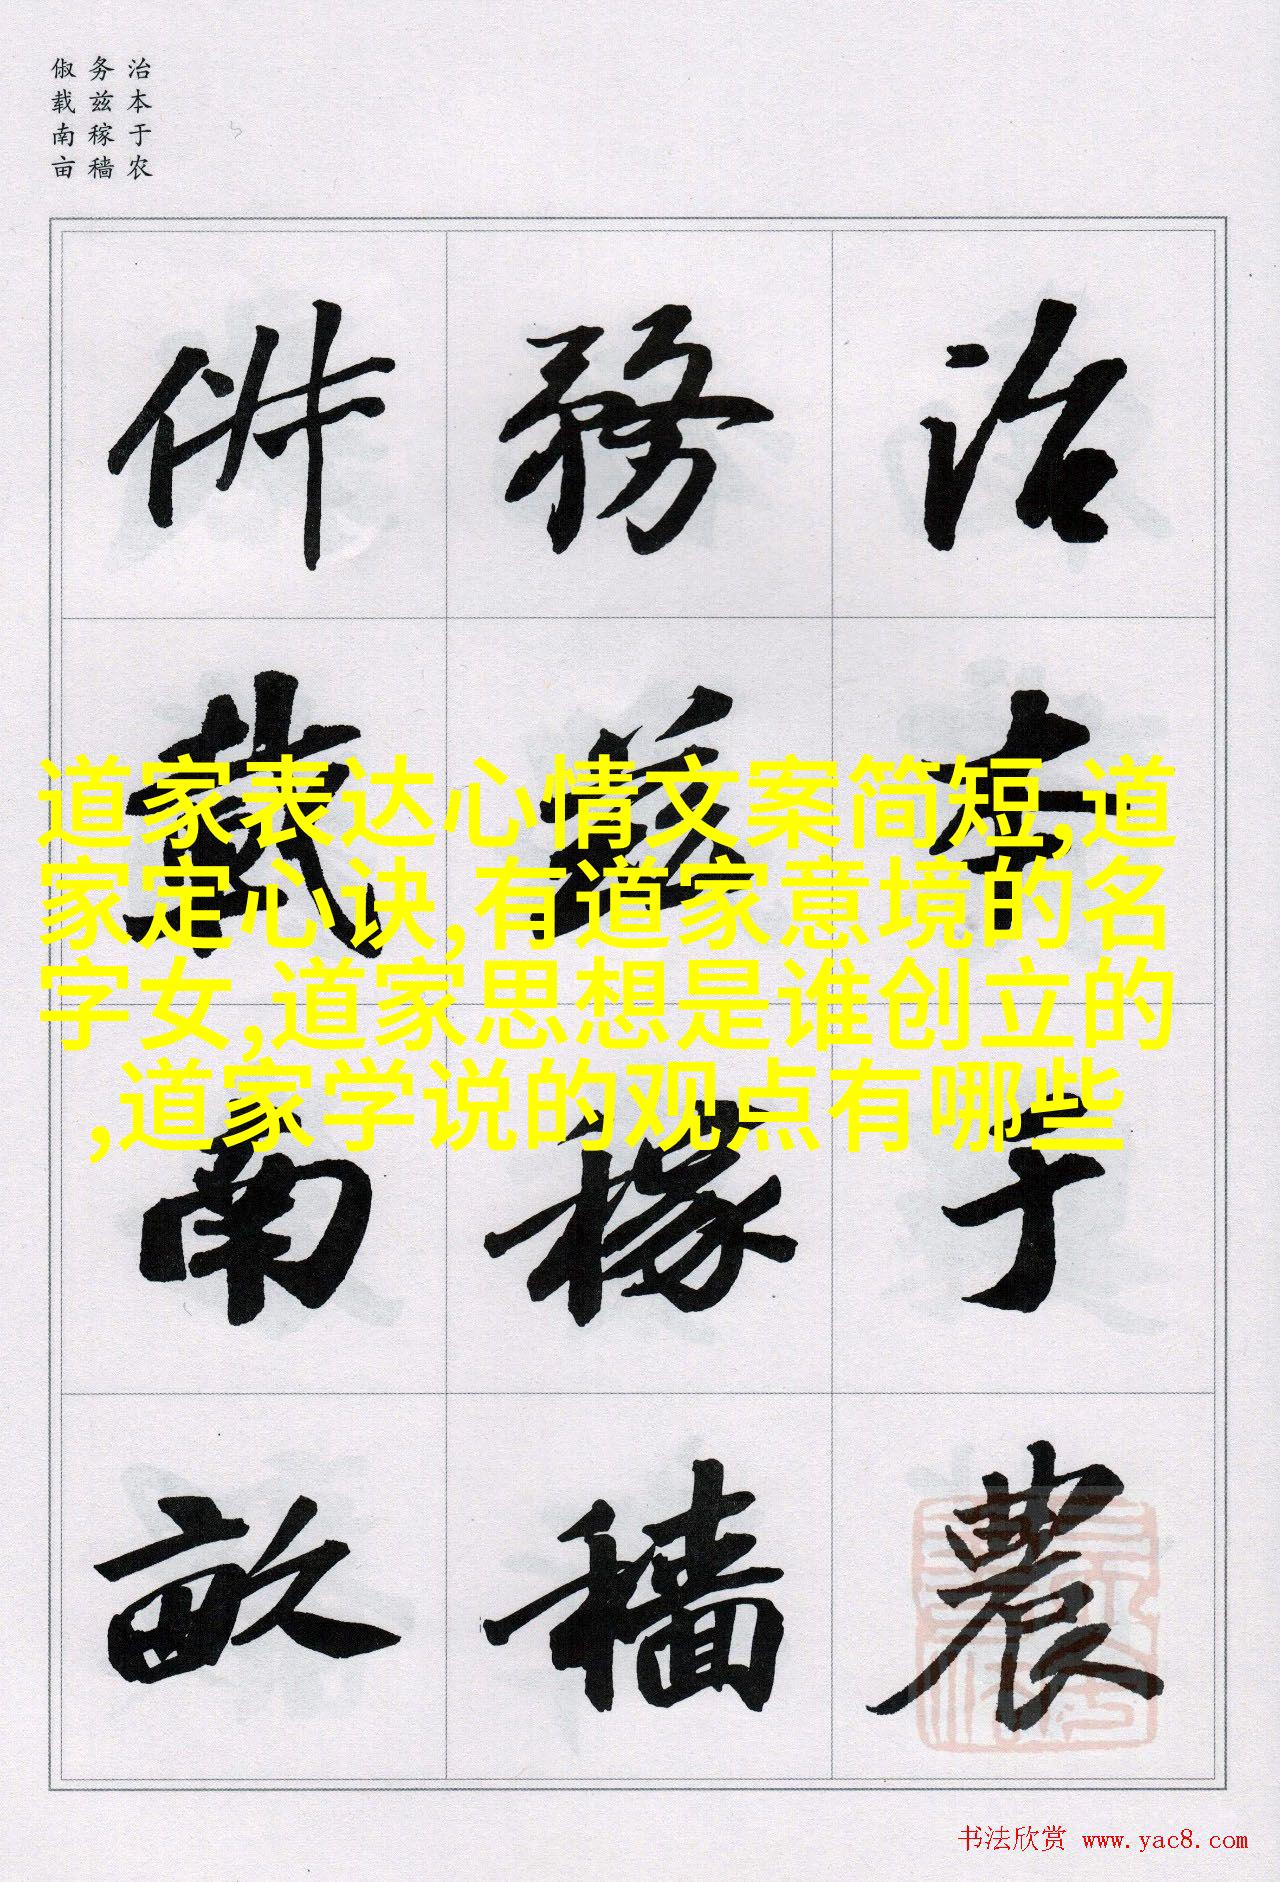 治本于农
务兹稼穑
俶载南亩
治本于農
務茲稼穡
俶載南畝
道家表达心情文案简短,道
家定心诀,有道家意境的名
字女,道家思想是谁创立的
,道家学说的观点有哪些
书法欣赏 www.yac8.com